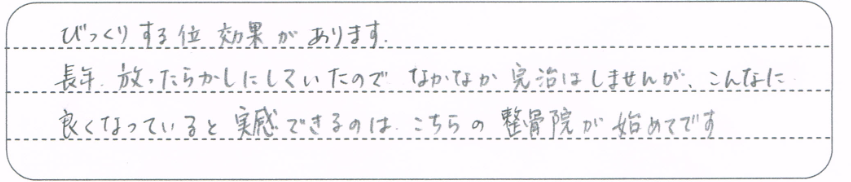 びっくりする位 効果があります.
長年. 放ったらかしにしていたので なかなか完治はしませんが、こんなに
良くなっていると実感できるのは. こちらの整骨院が始めてです